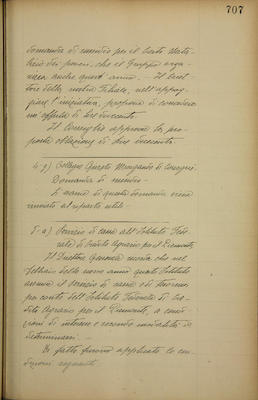 707
domanda di sussidio per il
che il Gruppo orga-
nizza anche quest'anno. — Il Diret-
tore della nostra Filiale, nell'appog-
giare l'iniziativa, propone di concedere
un'offerta di lire duecento.
Il Consiglio approva la pro-
posta elezione di lire duecento.
4-g) Collegio Convitto
Domanda di sussidio.
L'esame di questa domanda viene
rinviato al riparto utili.
5-a) Servizio di cassa all'Istituto Fede-
rale di Credito Agrario per il Piemonte.
Il Direttore Generale ricorda che nel
febbraio dello scorso anno questo Istituto
assunse il servizio di cassa e di tesoreria
per conto dell'Istituto Federale di Cre-
dito Agrario per il Piemonte, a condi-
zioni di interesse e secondo modalità da
determinarsi. —
Di fatto furono applicate le con-
dizioni seguenti: